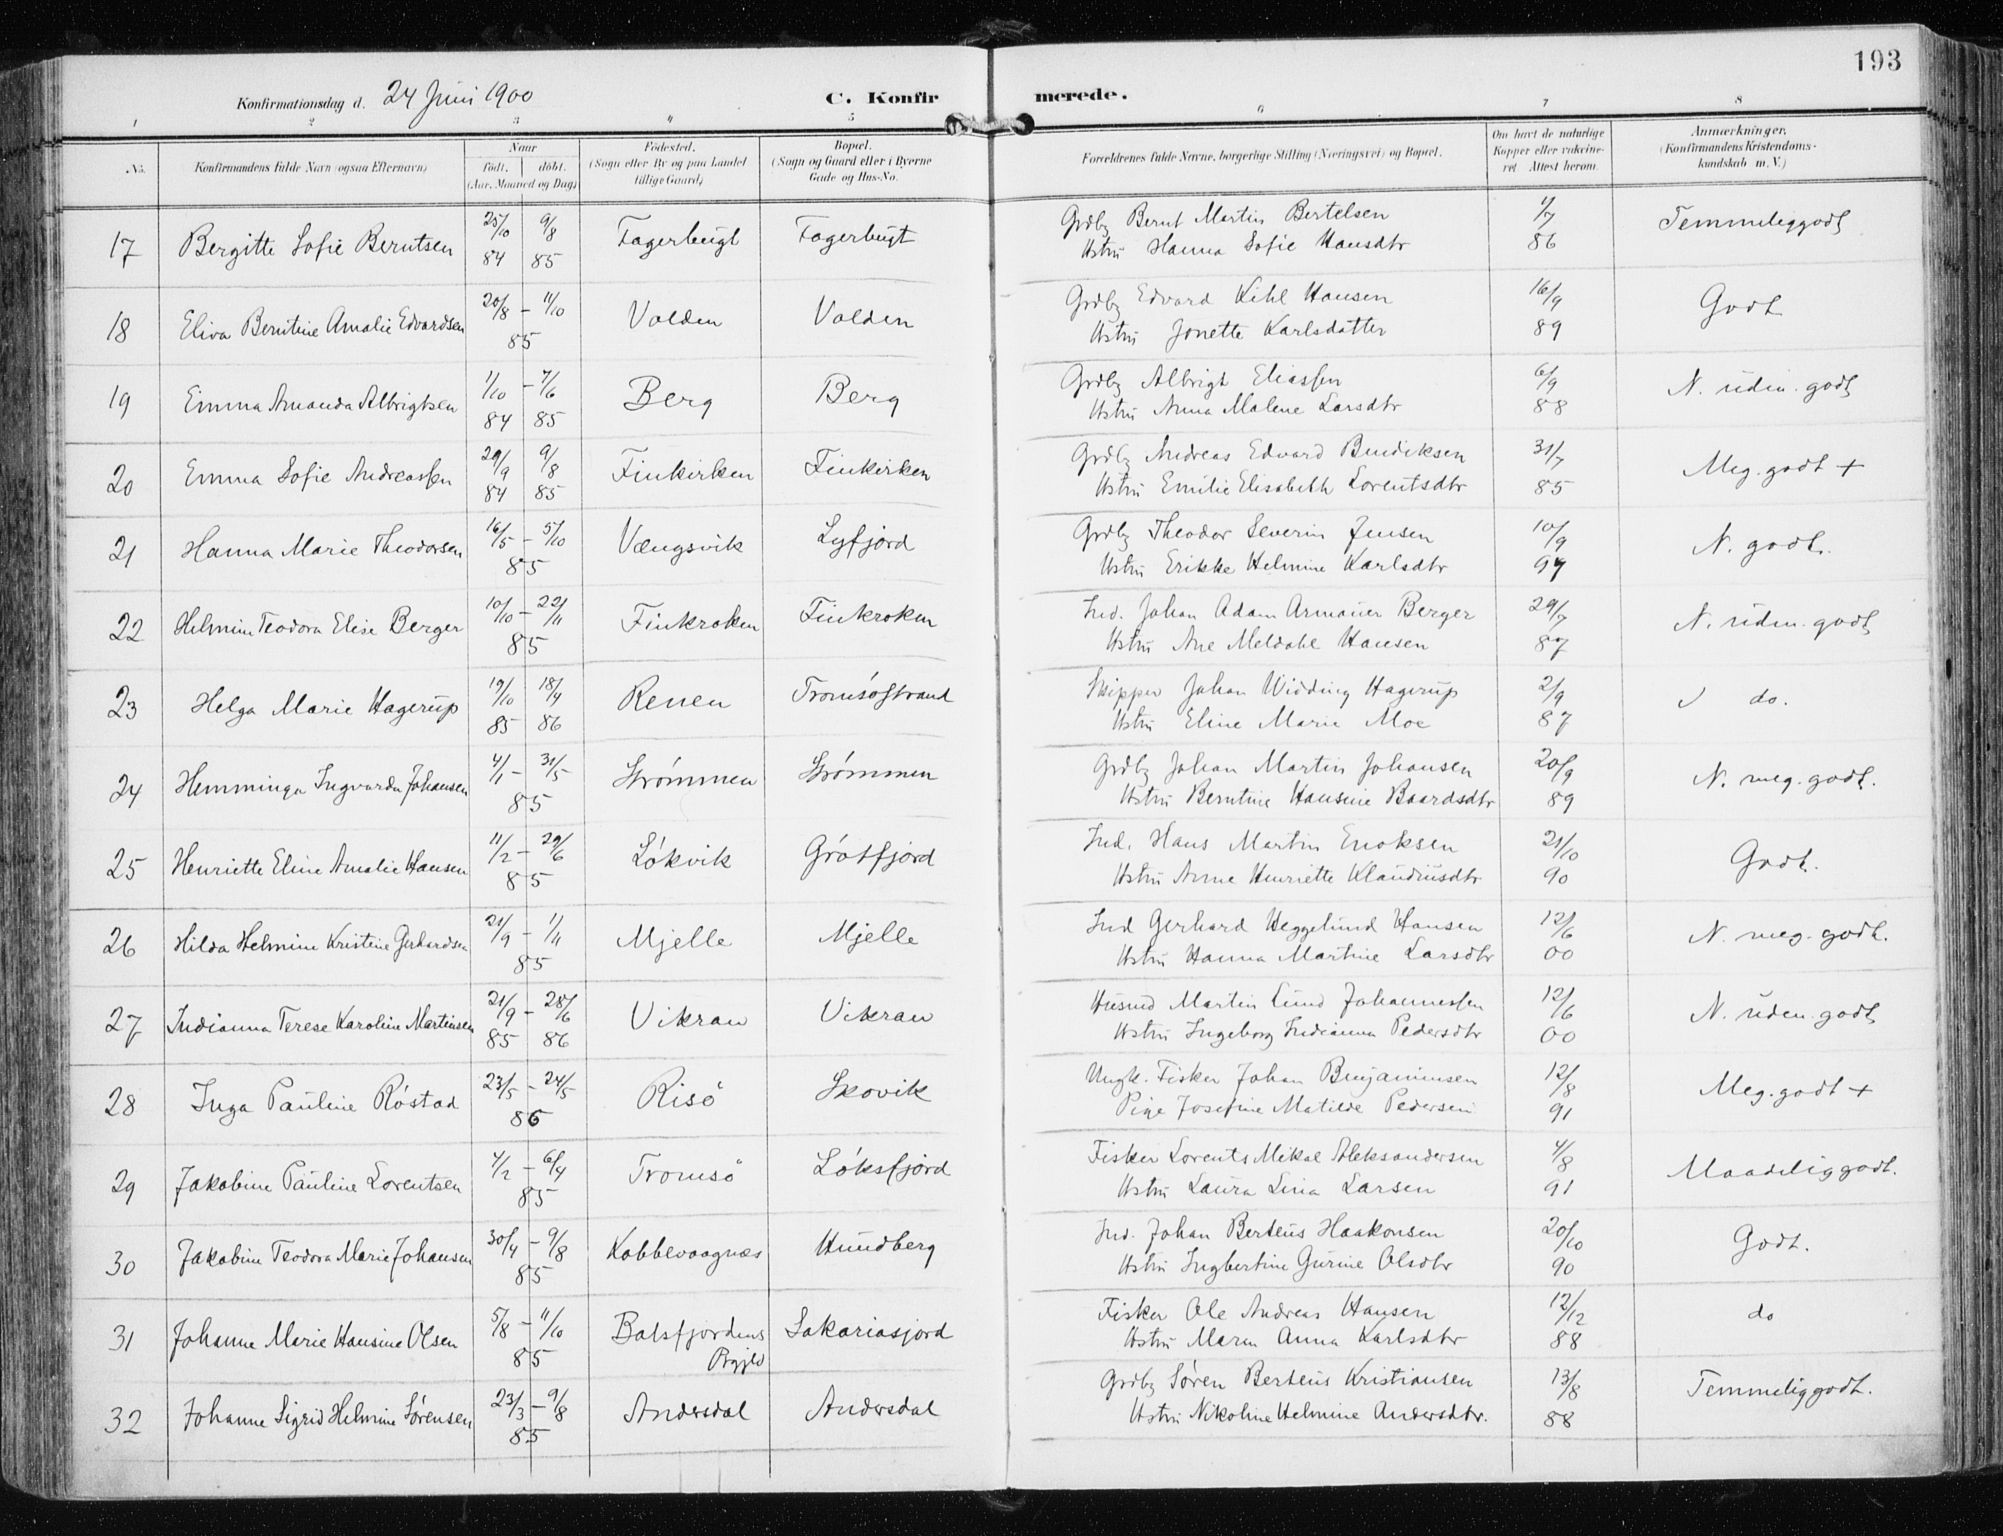 193
Konfirmationsdag d. 24 Juni 1900 C. Konfirmerede.
1 2 3 4 5 6 7 8
No. Konfirmandens fulde Navn (ogsaa Efternavn) Naar født. døbt. (Aar, Maaned og Dag) Fødested. (Sogn eller By og paa Landet tillige Gaard) Bopæl. (Sogn og Gaard eller i Byerne Gade og Hus-No. Forældrenes fulde Navne, borgerlige Stilling (Næringsvei) og Bopæl. Om havt de naturlige Kopper eller vakcineret Attest herom. Anmærkninger. (Konfirmandens Kristendomskundskab m. V.)
17 Bergitte Sofie Berntsen 25/10 84 9/8 85 Fagerbugt Fagerbugt Grdbg Bernt Martin Bertelsen 4/7 86 Temmeliggodt
Hstru Hanna Sofie Hansdtr
18 Eliva Berntine Amalie Edvardsen 20/8 – 11/10 85 Volden Volden Grdbg Edvard Kihl Hansen 16/9 89 Godt
Hstru Jonette Karlsdatter
19 Emma Amanda Albrigtsen 1/10 84 – 7/6 85 Berg Berg Grdbg Albrigt Eliassen 6/9 88 N. uden godt
Hstru Anna Malene Larsdtr
20 Emma Sofie Andreassen 29/9 84 9/8 85 Finkirken Finkirken Grdbg Andreas Edvard Bendiksen 31/7 85 Meg. godt +
Hstru Emilie Elisabeth Lorentsdtr
21 Hanna Marie Theodorsen 16/5 – 5/10 85 Vængsvik Lyfjord Grdbg Theodor Severin Jensen 10/9 N. godt.
Hstru Erikke Helmine Karlsdtr
22 Helmine Teodora Elise Berger 10/10 – 22/11 85 Finkroken Finkroken Ind. Johan Adam Armauer Berger 29/7 87 N. uden godt
Hstru Ane Meldahl Hansen
23 Helga Marie Hagerup 19/10 85 18/4 86 Renen Tromsøstrand Skipper Johan Widding Hagerup 2/9 87 do.
Hstru Eline Marie Moe
24 Hemminga Ingvarda Johansen 4/1 – 31/5 85 Strømmen Strømmen Grdbg Johan Martin Johansen 20/9 89 N. meg. godt.
Hstru Berntine Hansine Baardsdtr
25 Henriette Eline Amalie Hansen 11/2 – 29/6 85 Løkvik Grøtfjord Ind. Hans Martin Enoksen 21/10 90 Godt.
Hstru Anne Henriette Klaudiusdtr
26 Hilda Helmine Kristine Gerhardsen 21/9 – 1/11 85 Mjelle Mjelle Ind Gerhard Heggelund Hansen 12/6 00 N. meg. godt.
Hstru Hanna Martine Larsdtr
27 Indianna Terese Karoline Martinsen 21/9 85 – 28/6 86 Vikran Vikran Husmd Martin Lund Johannessen 12/6 00 N. uden godt
Hstru Ingeborg Indianna Pedersdtr
28 Inga Pauline Røstad 23/5 – 24/5 86 Risø Skovik Ungk. Fisker Johan Benjaminsen 12/8 91 Meg. godt +
Pige Josefine Matilde Pedersen
29 Jakobine Pauline Lorentsen 4/2 – 6/4 85 Tromsø Løksfjord Fisker Lorents Mikal Aleksandersen 4/8 91 Maadeliggodt.
Hstru Laura Lina Larsen
30 Jakobine Teodora Marie Johansen 30/4 – 9/8 85 Kobbevaagnæs Hundberg Ind. Johan Berteus Haakonsen 20/10 90 Godt.
Hstru Ingbertine Gurine Olsdtr
31 Johanne Marie Hansine Olsen 5/8 – 11/10 85 Balsfjordens Prgjld Sakariasjord Fisker Ole Andreas Hansen 12/12 88 do
Hstru Maren Anna Karlsdtr
32 Johanne Sigrid Helmine Sørensen 23/3 – 9/8 85 Andersdal Andersdal Grdbg Søren Berteus Kristiansen 13/8 88 Temmeliggodt.
Hstru Nikoline Helmine Andersdtr.